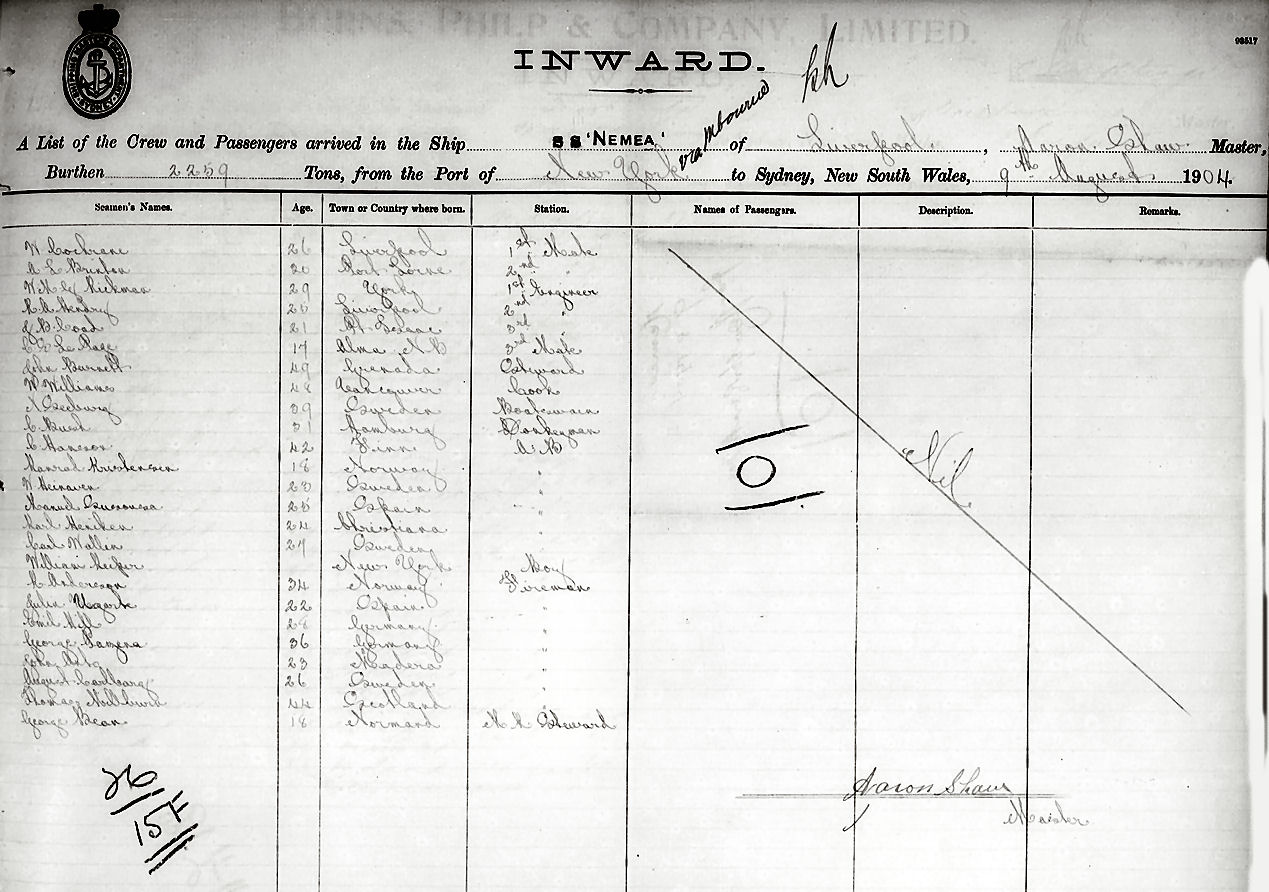 BURNS, PHILP & COMPANY, LIMITED.
98517
INWARD.
via Melbourne
A List of the Crew and Passengers arrived in the Ship SS 'NEMEA.' of Liverpool, Aaron Shaw Master,
Burthen 2259 Tons, from the Port of New York to Sydney, New South Wales, 9th August 1904.
Seamen's Names. Age. Town or Country where born. Station. Names of Passengers. Description. Remarks.
W Cochrane 26 Liverpool 1st Mate
A L Brinton 30 Port Lorne 2nd "
Rickman 29 York 1st Engineer
R A Hendry 25 Liverpool 2nd "
Coad 21 Pt Isaac 3rd "
Le Page Alma N B 3rd Mate
John Barnett 49 Grenada Steward
W Williams 48 Vancouver Cook
39 Sweden Boatswain
C Bush 31 Hamburg Donkeyman
C Hanson 42 Finn A B
Konrad Kristensen 18 Norway "
W 23 Sweden "
Manuel 25 Spain "
Karl 24 Christiana "
Carl Wallin 27 Sweden "
William New York Boy
Anderson 34 Norway Fireman
Julin Ugarte 22 Spain "
Emil Hill 28 Germany "
George 36 Germany "
John 23 Madera "
August Carlberg 26 Sweden "
Thomas 44 Scotland "
George Bean 18 Normand M R Steward
Nil
10
26
15F
Aaron Shaw
Master